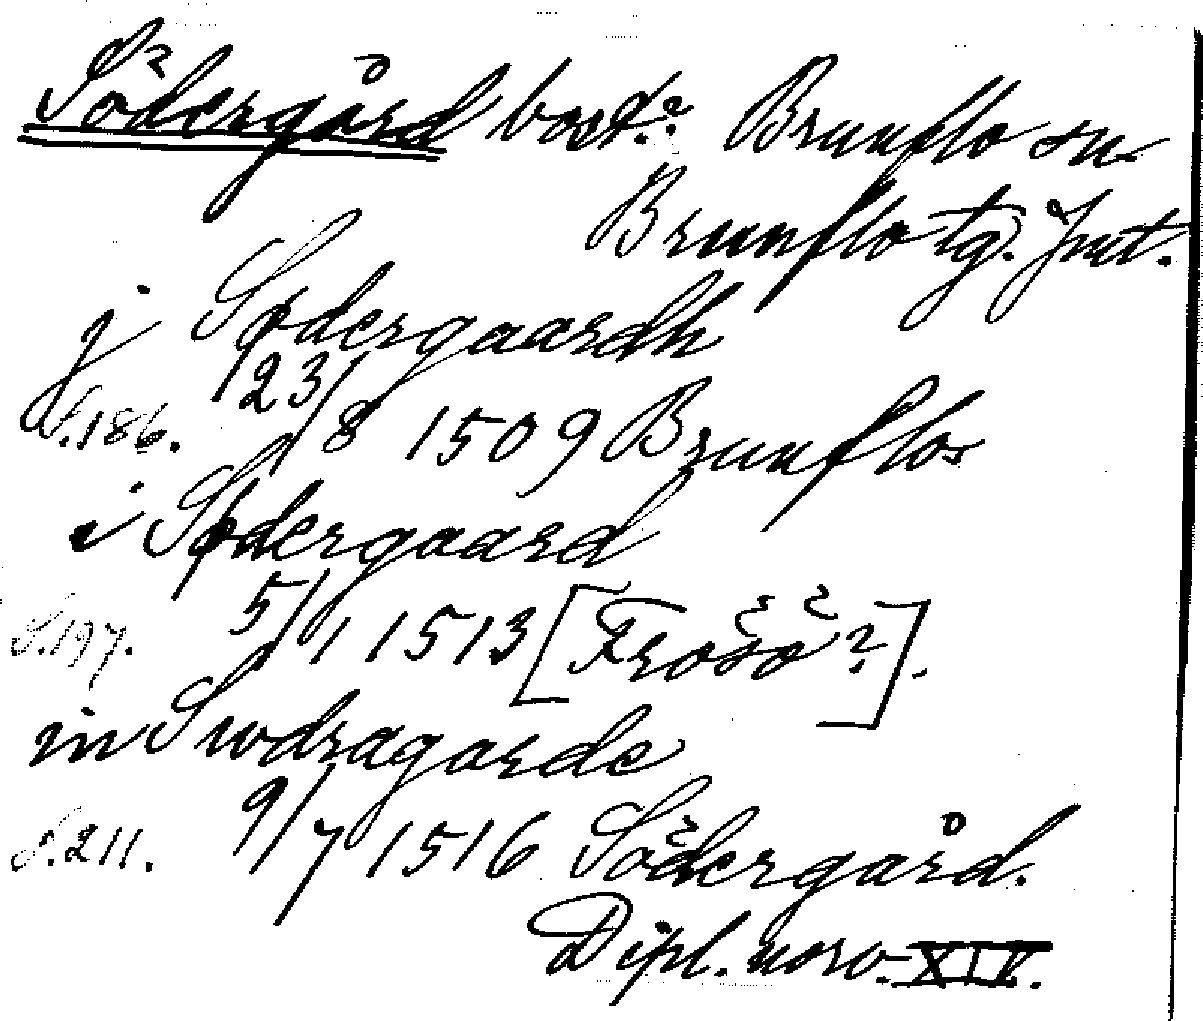 Södergård bost.? Brunflo sn
Brunflo tg. Jmt.
j Sødergaardh
S. 186. 23/8 1509 Brunflo
i Sødergaard
S. 197. 5/1 1513 [Frösö?].
in Swdragarde
S. 211. 9/7 1516 Södergård.
Dipl. norv. XIV.